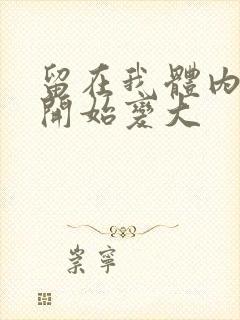 留在我體內
開始變大
崇寧